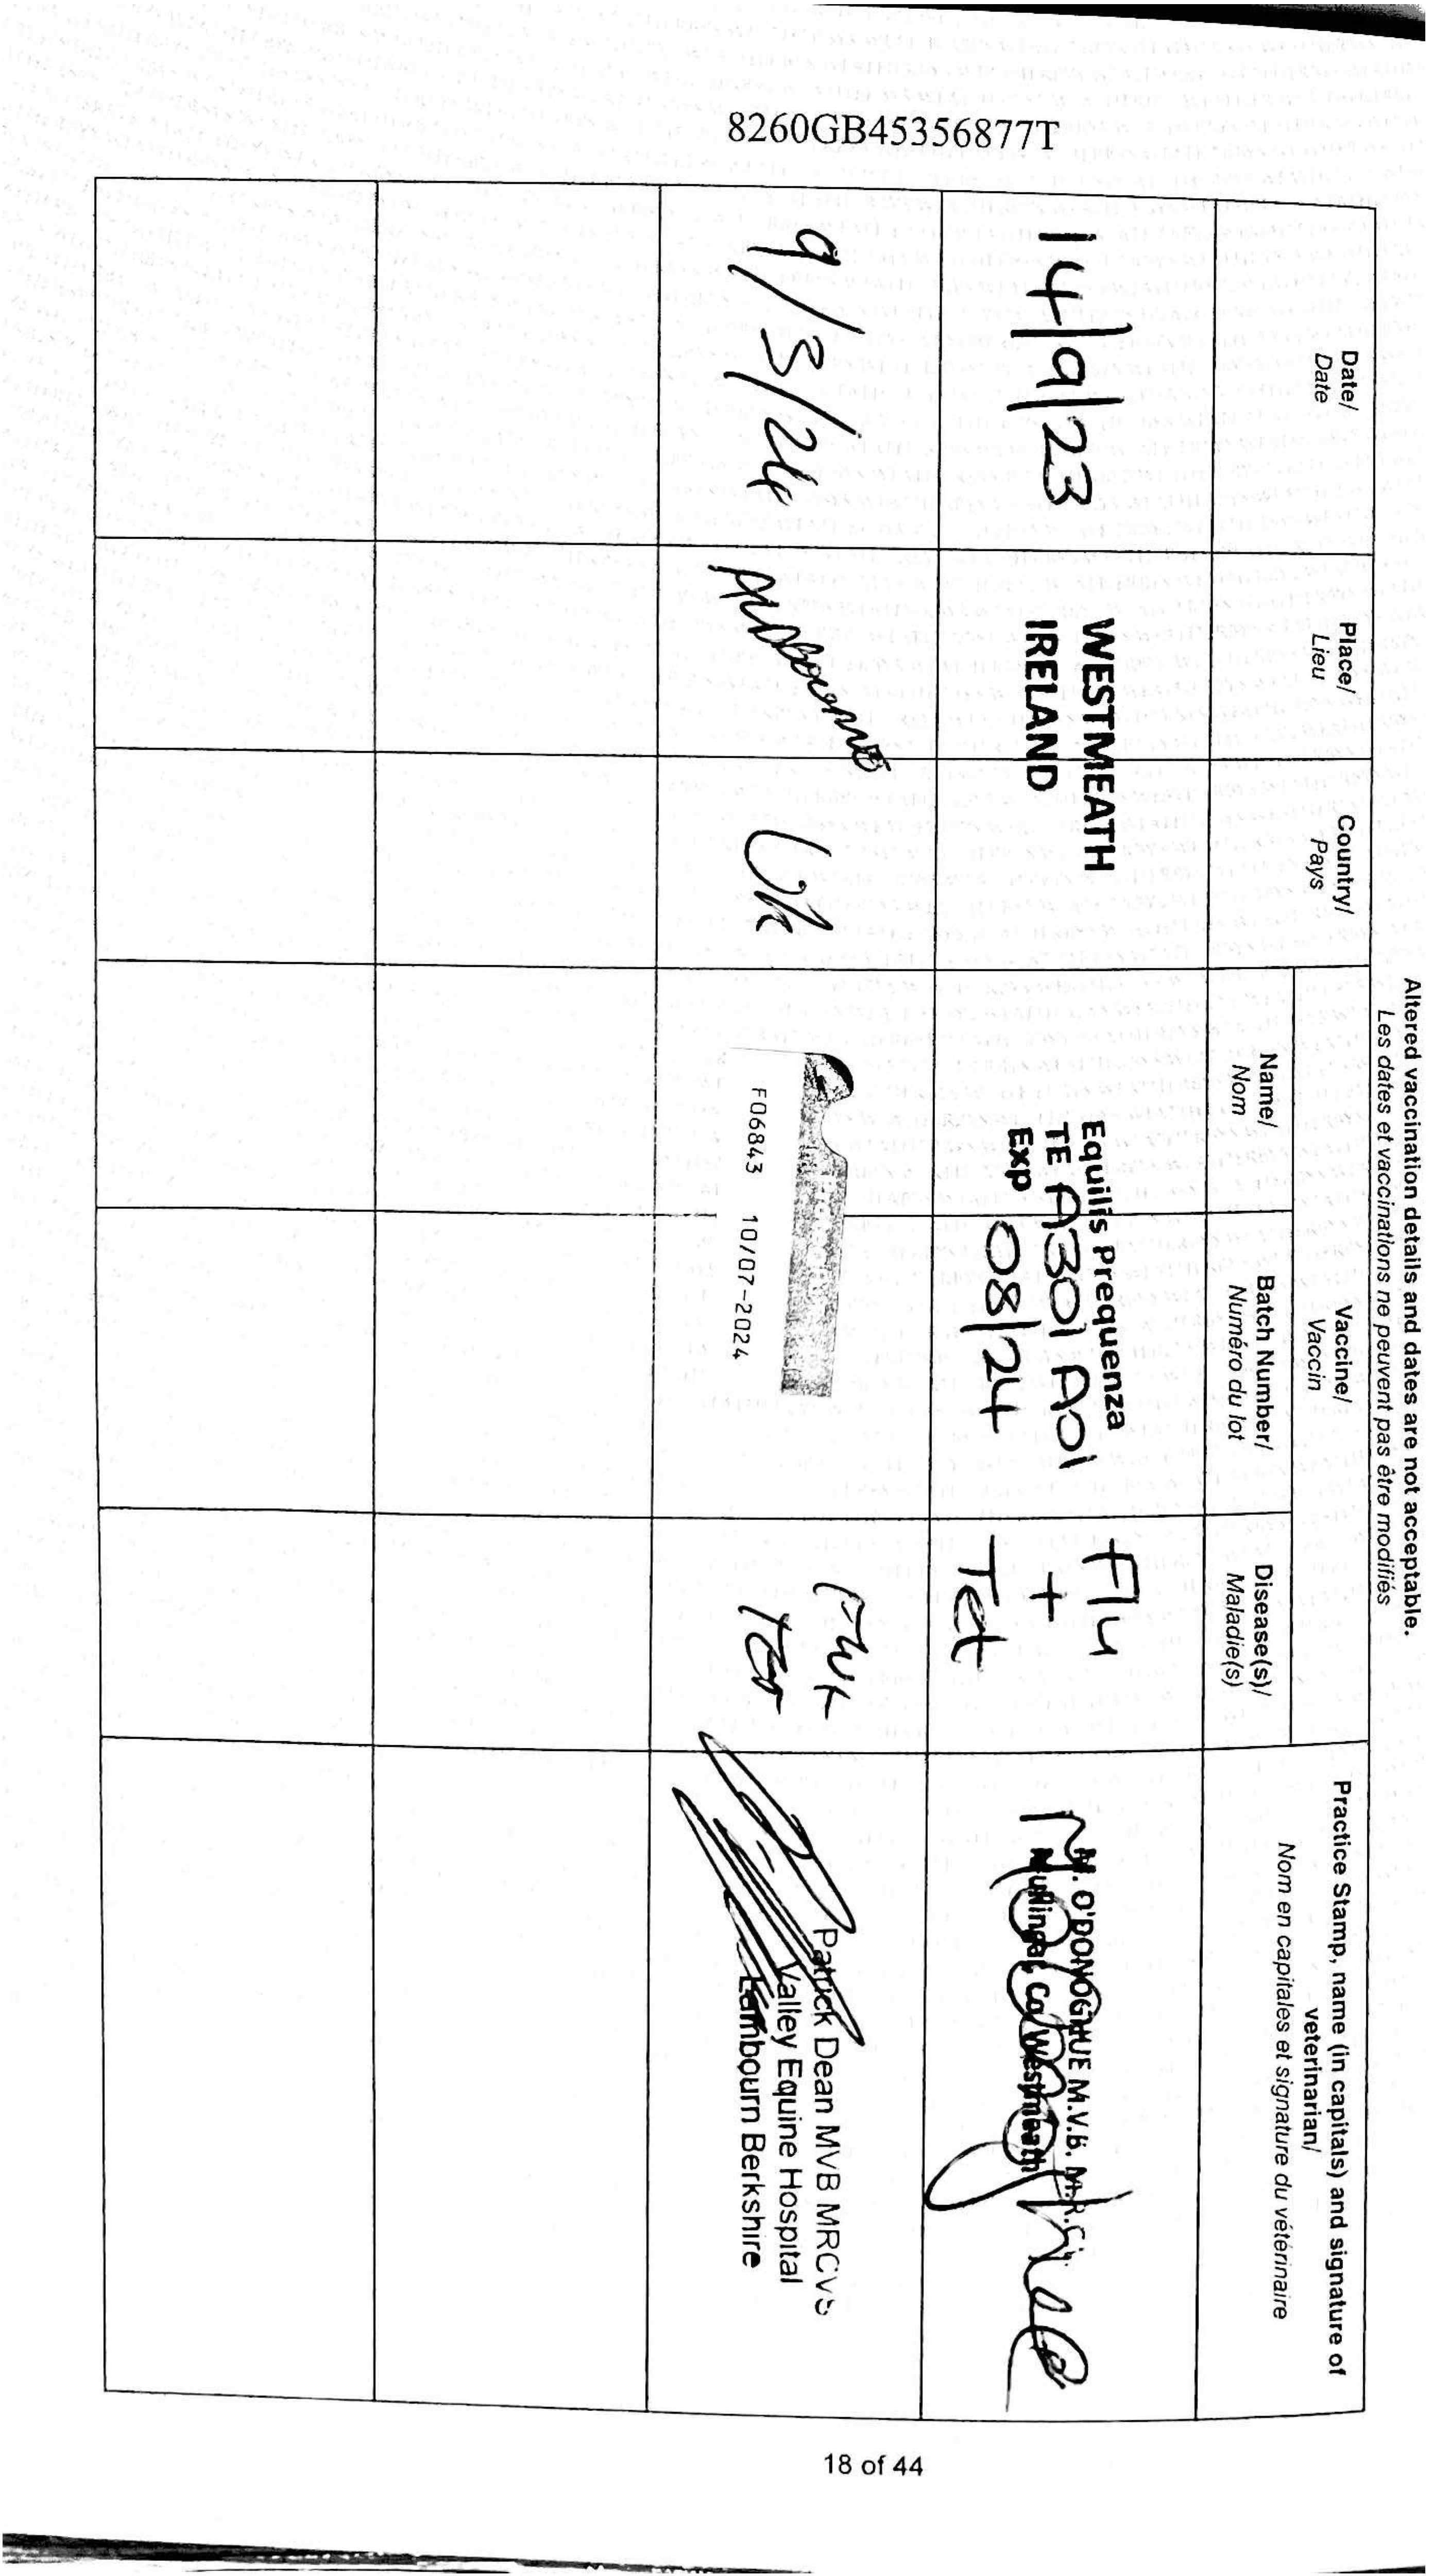 8260GB45356877T
Altered vaccination details and dates are not acceptable.
Les dates et vaccinations ne peuvent pas être modifiés
Date/
Date
Place/
Lieu
Country/
Pays
Vaccine/
Vaccin
Name/
Nom
Batch Number/
Numéro du lot
Disease(s)/
Maladie(s)
Practice Stamp, name (in capitals) and signature of
veterinarian/
Nom en capitales et signature du vétérinaire
14/9/23
WESTMEATH
IRELAND
Equilis Prequenza
TE A301A01
Exp 08/24
Flu
+
Tet
M. O'DONOGHUE M.V.B. M.R.C.
Mullingar, Co Westmeath
9/3/24
UK
F06843 10/07-2024
Patrick Dean MVB MRCVS
Valley Equine Hospital
Lambourn Berkshire
18 of 44